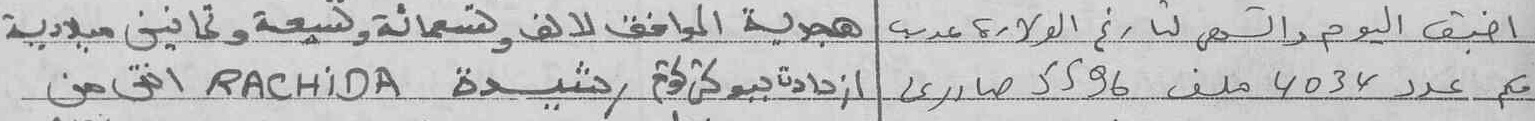 اضيف اليوم والشهر لتاريخ الولادة هجرية الموافق لالف وتسعمائة وتسعة وثمانين ميلادية
حكم عدد 4034 ملف 5596 صادر ازدادت رشيدة RACHIDA انثى من